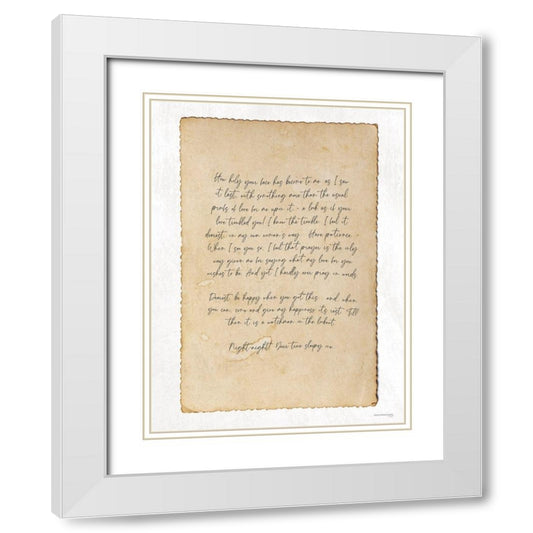 How holy your face has become to me as I saw
it last, with something more than the usual
proofs of love for me upon it - a look as if your
love troubled you! I know the trouble. I feel it
dearest, in my own woman's way. Have patience. -
When I see you so, I feel that prayer is the only
way given me for saying what my love for you
wishes to be. And yet I hardly ever pray in words.
Dearest, be happy when you get this and, when
you can, come and give my happiness its rest. Till
then it is a watchman on the lookout.
"Night-night!" Your true sleepy one.